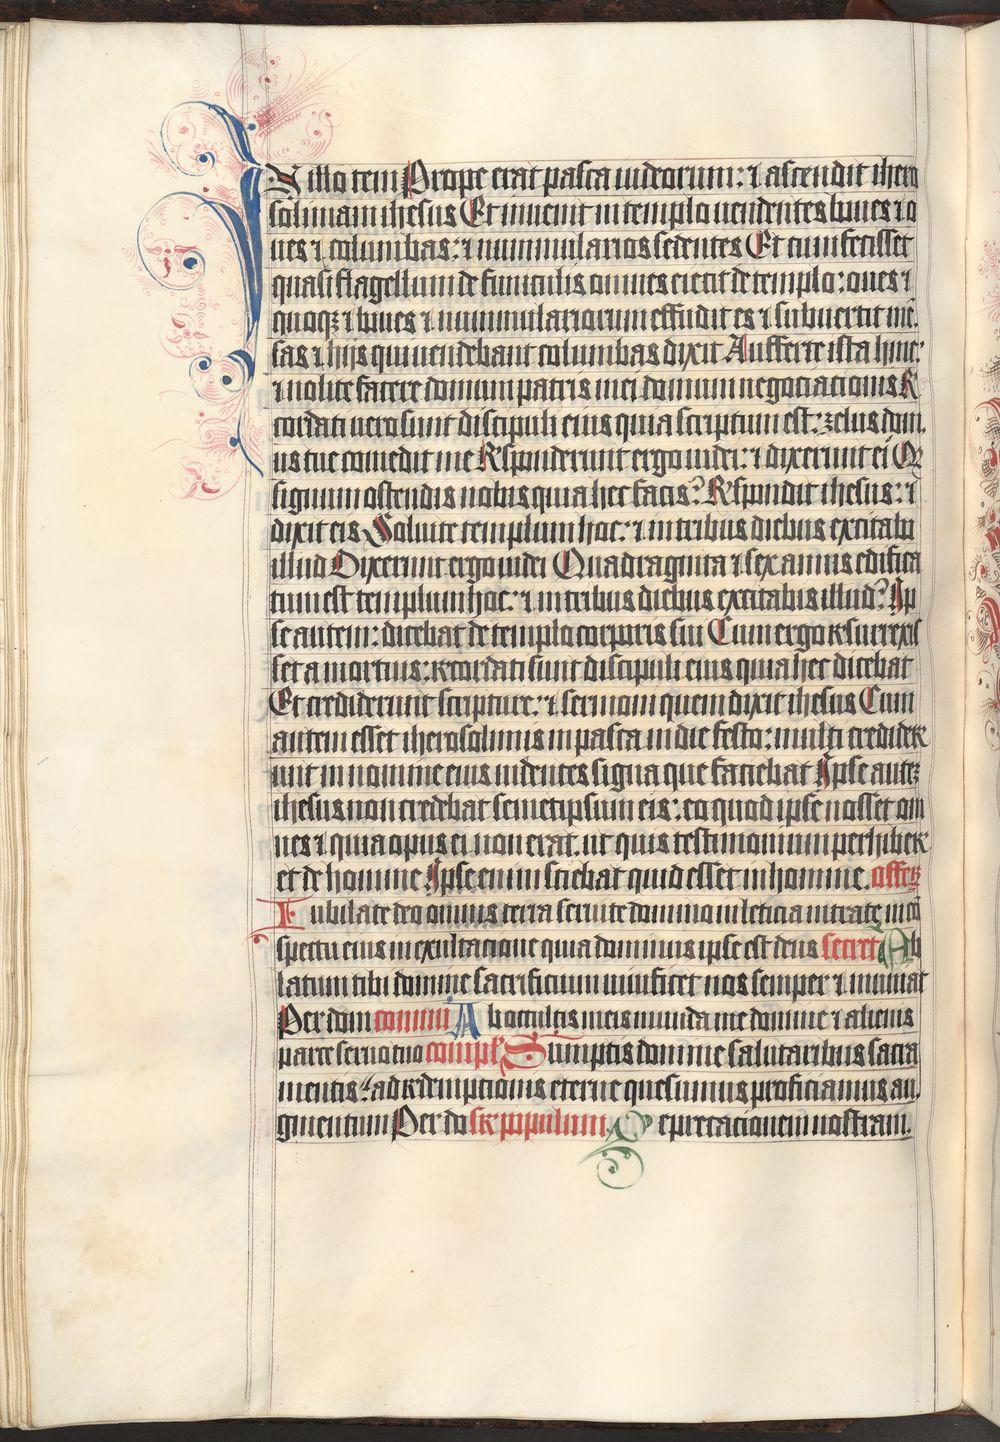 IN illo tem Prope erat pasca iudeorum: ⁊ ascendit ihero
solimam ihesus Et inuenit in templo uendentes boues ⁊ o
ues ⁊ columbas: ⁊ nummularios sedentes Et cum fecisset
quasi flagellum de funiculis omnes eiecit de templo: oues ⁊
quoqꝫ ⁊ boues ⁊ nummulariorum effudit es ⁊ subuertit mē
sas ⁊ hijs qui uendebant columbas dixit Aufferte ista hinc:
⁊ nolite facere domum patris mei domum negociacionis Re
cordati uero sunt discipuli eius quia scriptum est: zelus dom
us tue comedit me Responderunt ergo iudei: ⁊ dixerunt ei Qz
signum ostendis nobis quia hec facis? Respondit ihesus: ⁊
dixit eis Soluite templum hoc: ⁊ in tribus diebus excitabo
illud Dixerunt ergo iudei Quadraginta ⁊ sex annis edifica
tum est templum hoc: ⁊ in tribus diebus excitabis illud? Ip
se autem: dicebat de templo corporis sui Cum ergo resurrexis
set a mortuis: recordati sunt discipuli eius quia hec dicebat
Et crediderunt scripture: ⁊ sermoni quem dixit ihesus Cum
autem esset iherosolimis in pasca in die festo: multi credider
unt in nomine eius uidentes signa que faciebat Ipse autez
ihesus non credebat semetipsum eis: eo quod ipse nosset om
nes ⁊ quia opus ei non erat. ut quis testimonium perhiberet
et de homine Ipse enim sciebat quid esset in homine. offerz
Iubilate deo omnis terra seruite domino in leticia intrate in cō
spectu eius in exultacione quia dominus ipse est deus secret Ab
latum tibi domine sacrificium uiuificet nos semper ⁊ muniat
Per dom commu Ab occultis meis munda me domine ⁊ alienis
parce seruo tuo compl Sumptis domine salutaribus sacra
mentis: ad redemptionis eterne quesumus proficiamus au
gmentum Per do sr populum Deprecacionem nostram.